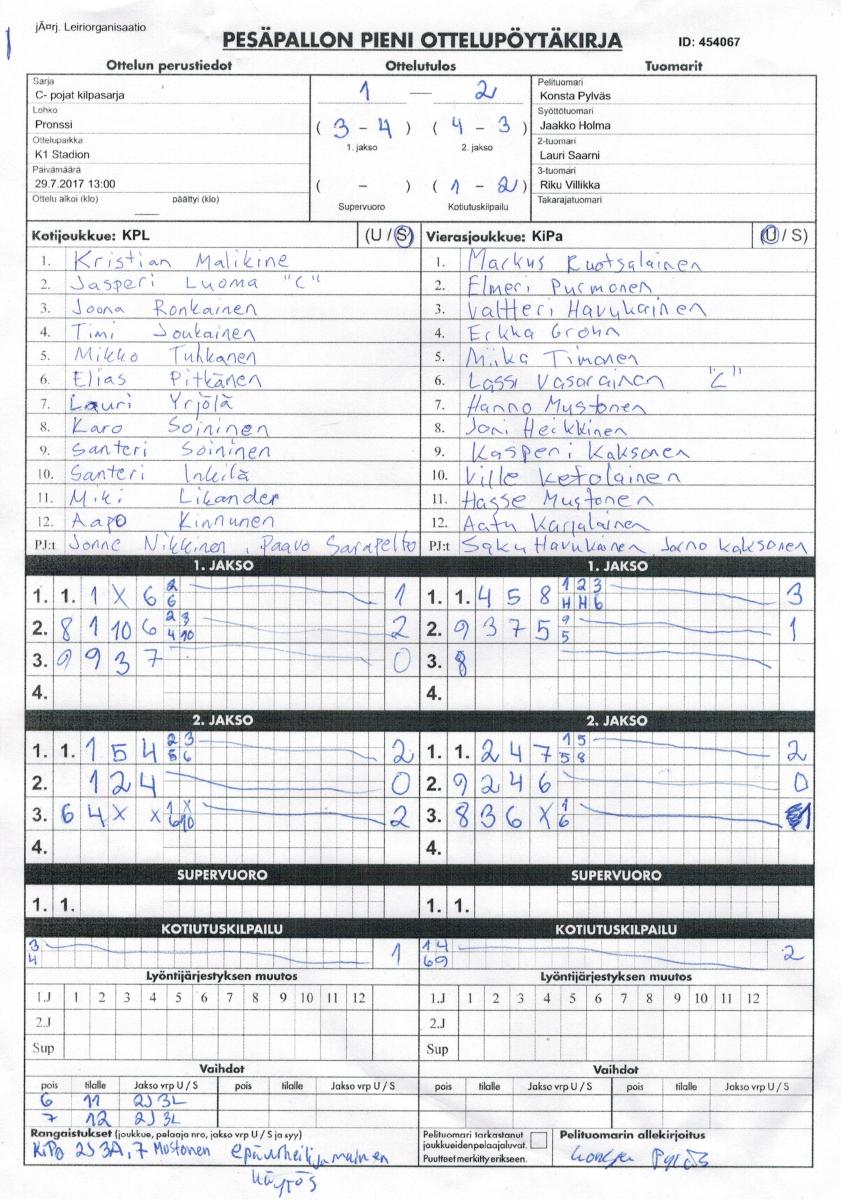 jÃ¤rj. Leiriorganisaatio
PESÄPALLON PIENI OTTELUPÖYTÄKIRJA ID: 454067
Ottelun perustiedot Ottelutulos Tuomarit
Sarja
C- pojat kilpasarja
Lohko
Pronssi
Ottelupaikka
K1 Stadion
Päivämäärä
29.7.2017 13:00
Ottelu alkoi (klo) päättyi (klo)
1 — 2
( 3 - 4 ) ( 4 - 3 )
1. jakso 2. jakso
( - ) ( 1 - 2 )
Supervuoro Kotiutuskilpailu
Pelituomari
Konsta Pylväs
Syöttötuomari
Jaakko Holma
2-tuomari
Lauri Saarni
3-tuomari
Riku Villikka
Takarajatuomari
Kotijoukkue: KPL (U / S)
1. Kristian Malikine
2. Jasperi Luoma "C"
3. Joona Ronkainen
4. Timi Joukainen
5. Mikko Tuhkanen
6. Elias Pitkänen
7. Lauri Yrjölä
8. Karo Soininen
9. Santeri Soininen
10. Santeri Inkilä
11. Miki Likander
12. Aapo Kinnunen
PJ:t Jonne Nikkinen, Paavo Sarapelto
Vierasjoukkue: KiPa (U / S)
1. Markus Ruotsalainen
2. Elmeri Purmonen
3. Valtteri Havukainen
4. Erkka Grohn
5. Miika Timonen
6. Lassi Vasarainen "C"
7. Hanno Mustonen
8. Joni Heikkinen
9. Kasperi Kaksonen
10. Ville Ketolainen
11. Hasse Mustonen
12. Aatu Karjalainen
PJ:t Saku Havukainen, Jarno Kaksonen
1. JAKSO
1. 1. 1 X 6 2 1
6
2. 8 1 10 6 2 3 2
4 10
3. 9 9 3 7 0
4.
1. JAKSO
1. 1. 4 5 8 1 2 3 3
H H 6
2. 9 3 7 5 9 1
5
3. 8
4.
2. JAKSO
1. 1. 1 5 4 2 3 2
5 6
2. 1 2 4 0
3. 6 4 X X 1 X 2
6 10
4.
2. JAKSO
1. 1. 2 4 7 1 5 2
5 8
2. 9 2 4 6 0
3. 8 3 6 X 1 1
6
4.
SUPERVUORO
1. 1.
SUPERVUORO
1. 1.
KOTIUTUSKILPAILU
3 1
4
KOTIUTUSKILPAILU
1 4 2
6 9
Lyöntijärjestyksen muutos
1.J 1 2 3 4 5 6 7 8 9 10 11 12
2.J
Sup
Lyöntijärjestyksen muutos
1.J 1 2 3 4 5 6 7 8 9 10 11 12
2.J
Sup
Vaihdot
pois tilalle Jakso vrp U / S pois tilalle Jakso vrp U / S
6 11 2J 3L
7 12 2J 3L
Vaihdot
pois tilalle Jakso vrp U / S pois tilalle Jakso vrp U / S
Rangaistukset (joukkue, pelaaja nro, jakso vrp U / S ja syy)
KiPa 2J 3A, 7 Mustonen epäurheilijamainen
käytös
Pelituomari tarkastanut
joukkuoidenpelaajaluvat.
Puutteet merkitty erikseen.
Pelituomarin allekirjoitus
Konsta Pylväs